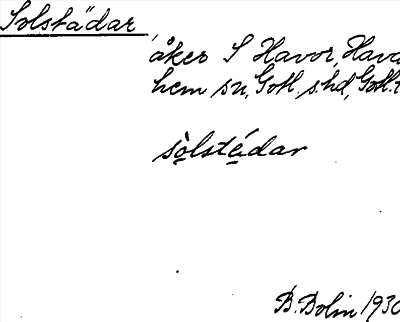 Solstädar,
åker S Havor, Hava
hem sn, Gotl. s. hd, Gotl.
sòlstádar
B. Bolin 1930